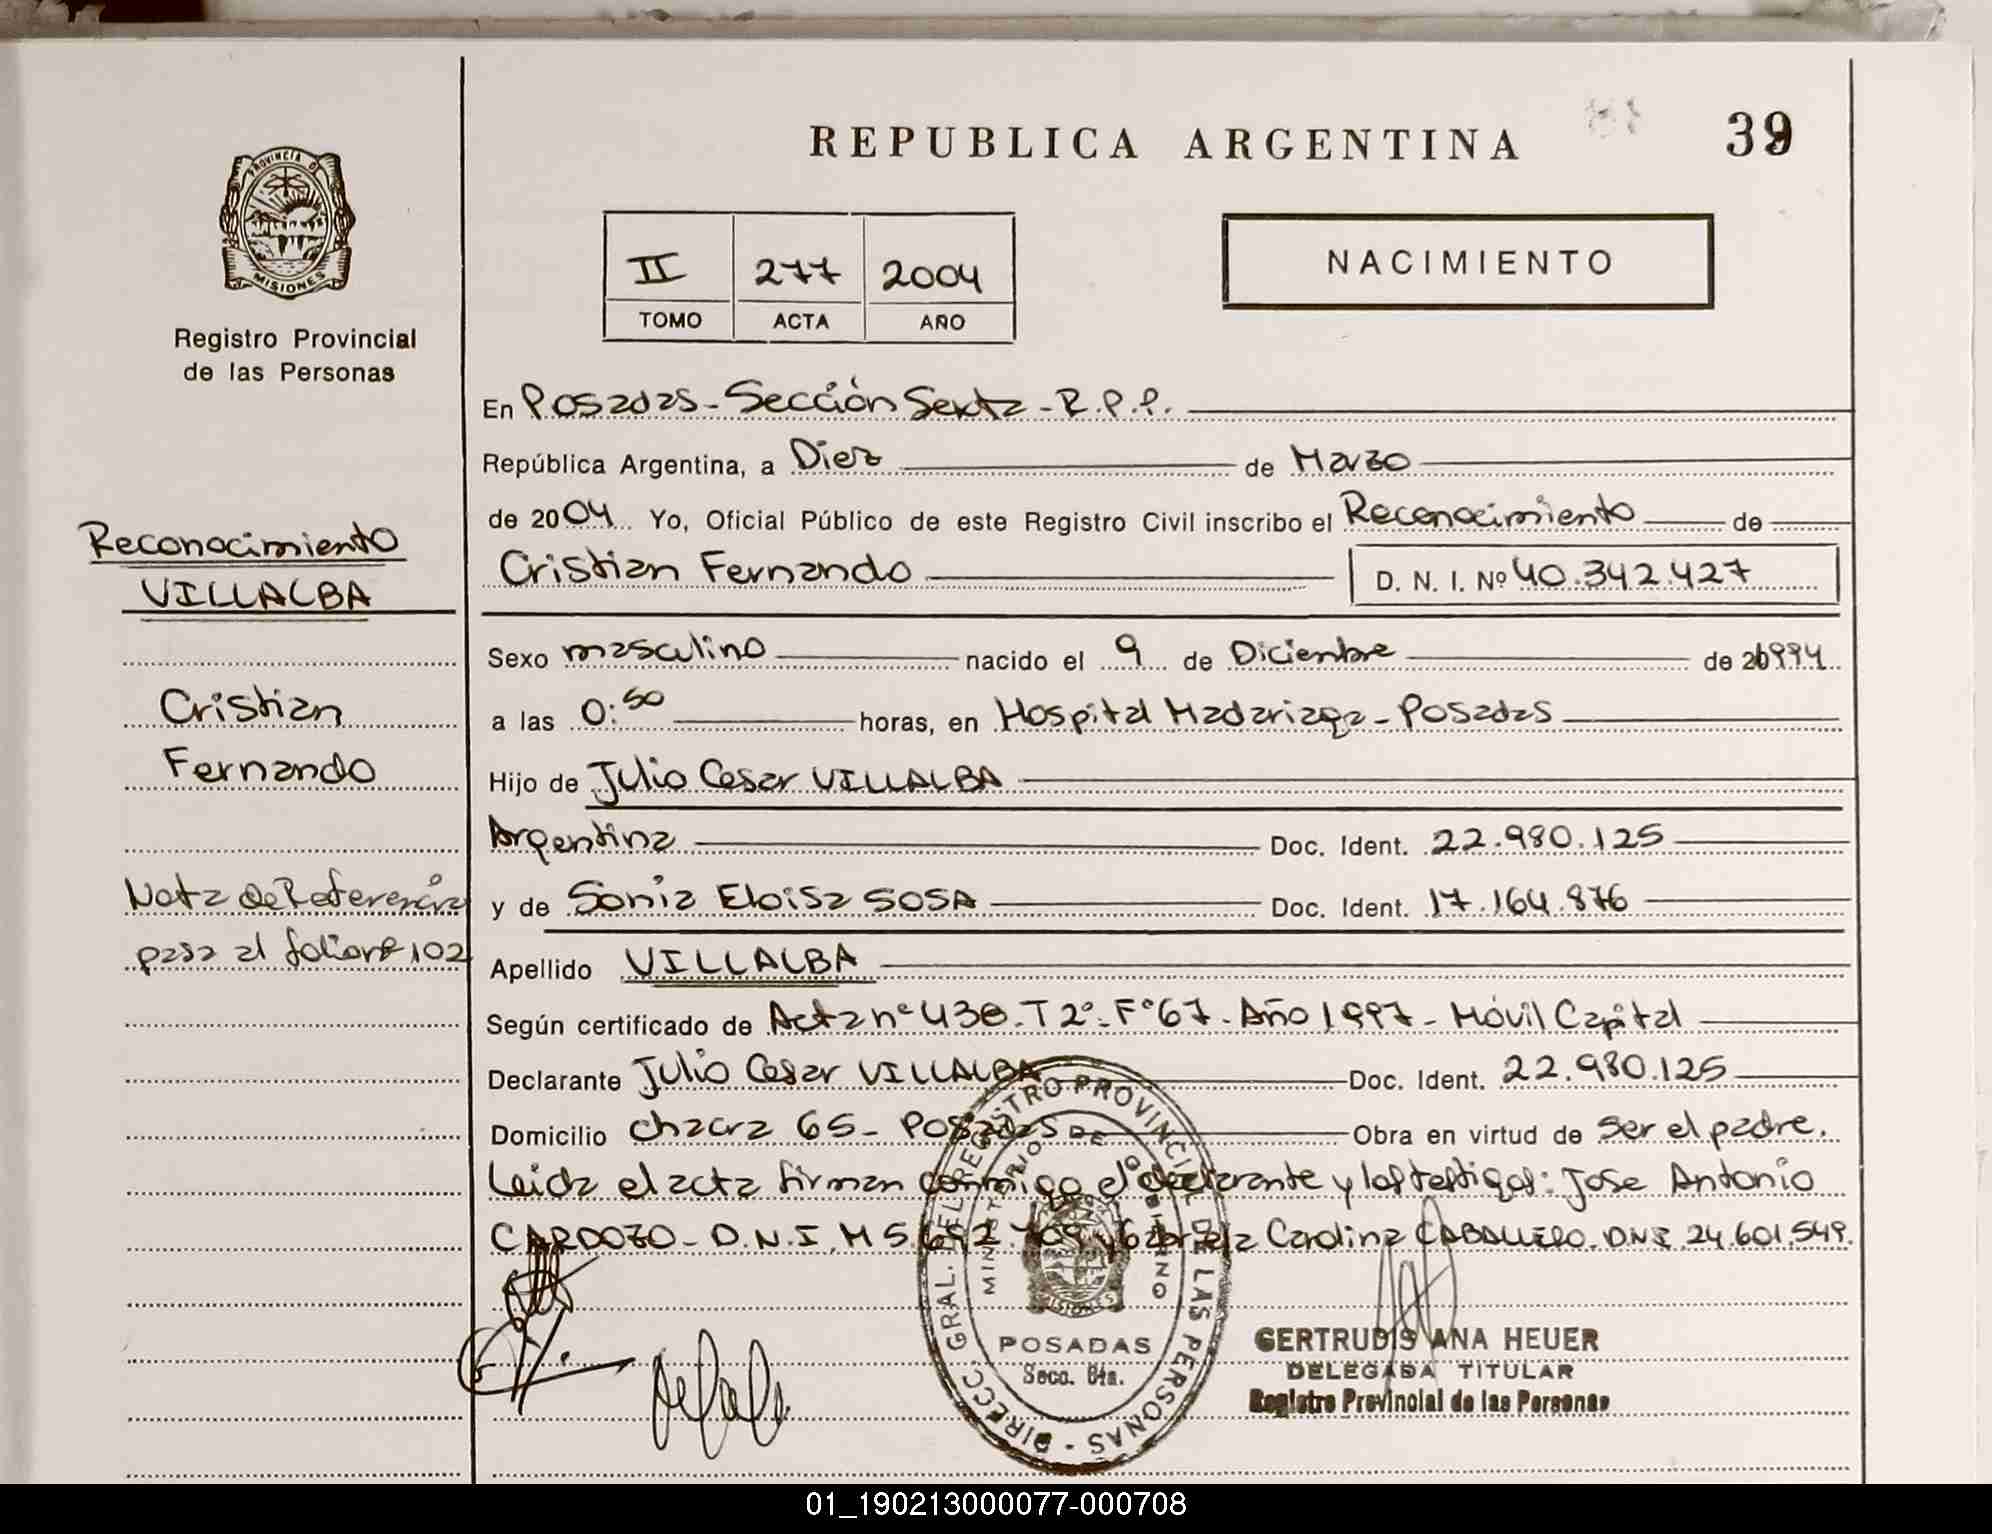 REPUBLICA ARGENTINA
39
PROVINCIA DE
MISIONES
Registro Provincial
de las Personas
II 277 2004
TOMO ACTA AÑO
NACIMIENTO
En Posadas - Sección Sexta - R.P.P.
República Argentina, a Diez de Marzo
de 2004 Yo, Oficial Público de este Registro Civil inscribo el Reconocimiento de
Cristian Fernando D. N. I. Nº 40.342.427
Sexo masculino nacido el 9 de Diciembre de 1994
a las 0:50 horas, en Hospital Madariaga - Posadas
Hijo de Julio Cesar VILLALBA
Argentina Doc. Ident. 22.980.125
y de Sonia Eloisa SOSA Doc. Ident. 17.164.876
Apellido VILLALBA
Según certificado de Acta nº 430 - T 2º - Fº 67 - Año 1997 - Móvil Capital
Declarante Julio Cesar VILLALBA Doc. Ident. 22.980.125
Domicilio chacra 65 - Posadas Obra en virtud de ser el padre.
Leida el acta firman conmigo el declarante y los testigos: Jose Antonio
CARDOZO - D.N.I. M 5.692. y Carolina CABALLERO. DNI. 24.601.549.
Reconocimiento
VILLALBA
Cristian
Fernando
Nota de Referencia
pasa al folio nº 102
DIRECC. GRAL. DEL REGISTRO PROVINCIAL DE LAS PERSONAS
MINISTERIO DE GOBIERNO
MISIONES
POSADAS
Secc. 6ta.
GERTRUDIS ANA HEUER
DELEGADA TITULAR
Registro Provincial de las Personas
01_190213000077-000708